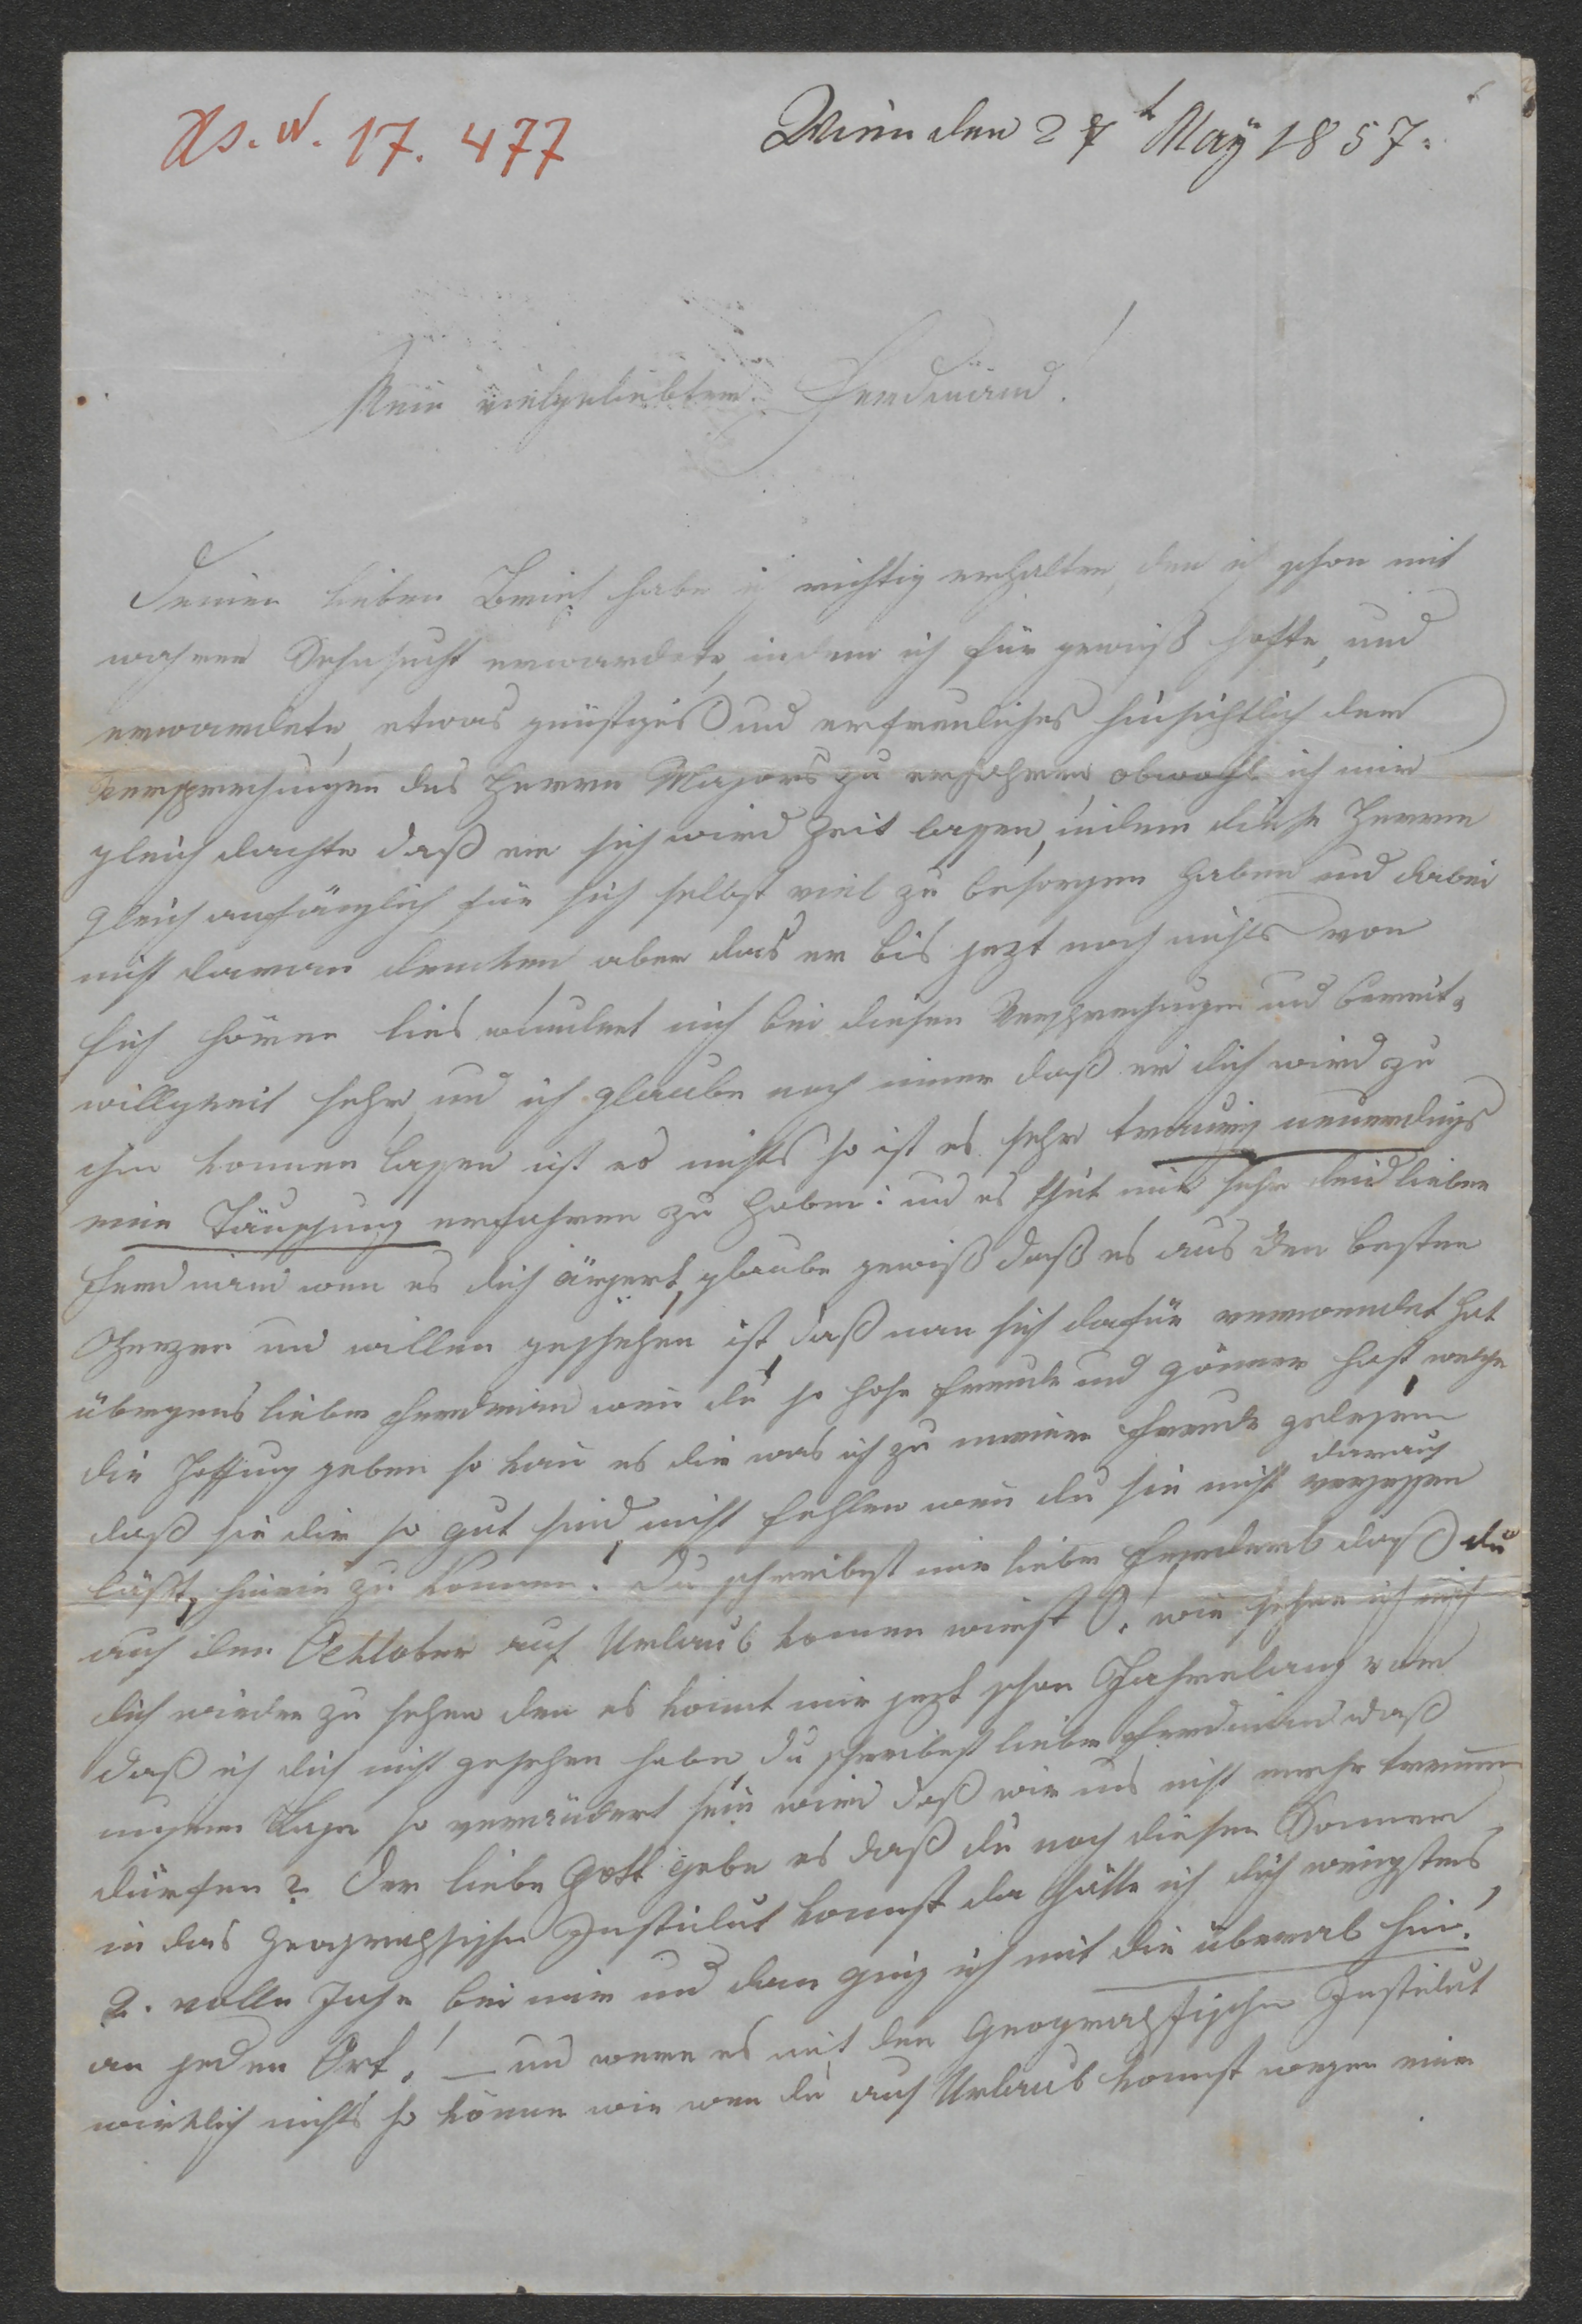 Hs. N. 17.477
Wien den 27t May 1857.
Mein vielgeliebter Ferdinand!
Deinen lieben Brief habe ich richtig erhalten, den ich schon mit
wahrer Sehnsucht erwardete, indem ich für gewiß hofte, und
erwardete, etwas günstiges und erfreuliches hinsichtlich der
Versprechungen des Herrn Majors zu erfahren, obwohl ich mir
gleich dachte daß er sich wird Zeit lassen, indem diese Herrn
gleich anfänglich für sich selbst viel zu besorgen haben und dabei
nicht daran dencken aber das er bis jezt noch nichts von
sich hören lies wundert mich bei diesen Versprechungen und bereit-
willigkeit sehr, und ich glaube noch immer daß er dich wird zu
ihm kommen lassen ist es nichts so ist es sehr traurig neuerdings
eine Täuschung erfahren zu haben: und es thut mir sehr leid lieber
Ferdinand wen es dich ärgert, glaube gewiß daß es aus den besten
Herzen und willen geschehen ist, daß man sich dafür verwendet hat
übrigens lieber Ferdinand wen du so hohe Freunde und gönner hast, welche
dir Hoffnung geben so kan es dir was ich zu meiner Freude gelesen
daß sie dir so gut sind, nicht fehlen wen du sie nicht darauf vergessen
läßt, hinein zu kommen. Du schreibst mir lieber Ferdinand daß du
auf den Ocktober auf Urlaub komen wirst O! wie sehne ich mich
dich wieder zu sehen den es komt mir jezt schon Jahrelang vor
daß ich dich nicht gesehen habe, du schreibst lieber Ferdinand daß
unsere Lage so verändert sein wird daß wir uns nicht mehr trennen
dürfen? Der liebe Gott gebe es daß du noch diesen Sommer
in das Geographische Institut komst da hätte ich dich wenigstens
2. volle Jahr bei mir und dan ging ich mit dir überal hin!
an jeden Ort! — und were es mit den Geographischen Institut
wirklich nichts so können wir wen du auf Urlaub kommst wegen einer